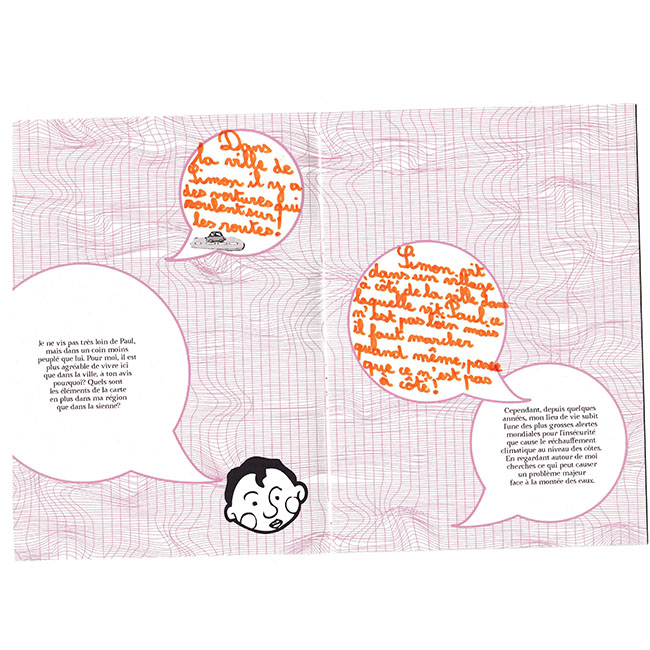 Dans
la ville de
Simon il y a
des voitures qui
roulent sur
les routes!
Je ne vis pas très loin de Paul,
mais dans un coin moins
peuplé que lui. Pour moi, il est
plus agréable de vivre ici
que dans la ville, à ton avis
pourquoi? Quels sont
les éléments de la carte
en plus dans ma région
que dans la sienne?
Simon vit
dans un village
à côté de la ville dans
laquelle vit Paul. ce
n'est pas loin mais
il faut marcher
quand même, parce
que ce n'est pas
à côté!
Cependant, depuis quelques
années, mon lieu de vie subit
l'une des plus grosses alertes
mondiales pour l'insécurité
que cause le réchauffement
climatique au niveau des côtes.
En regardant autour de moi
cherches ce qui peut causer
un problème majeur
face à la montée des eaux.